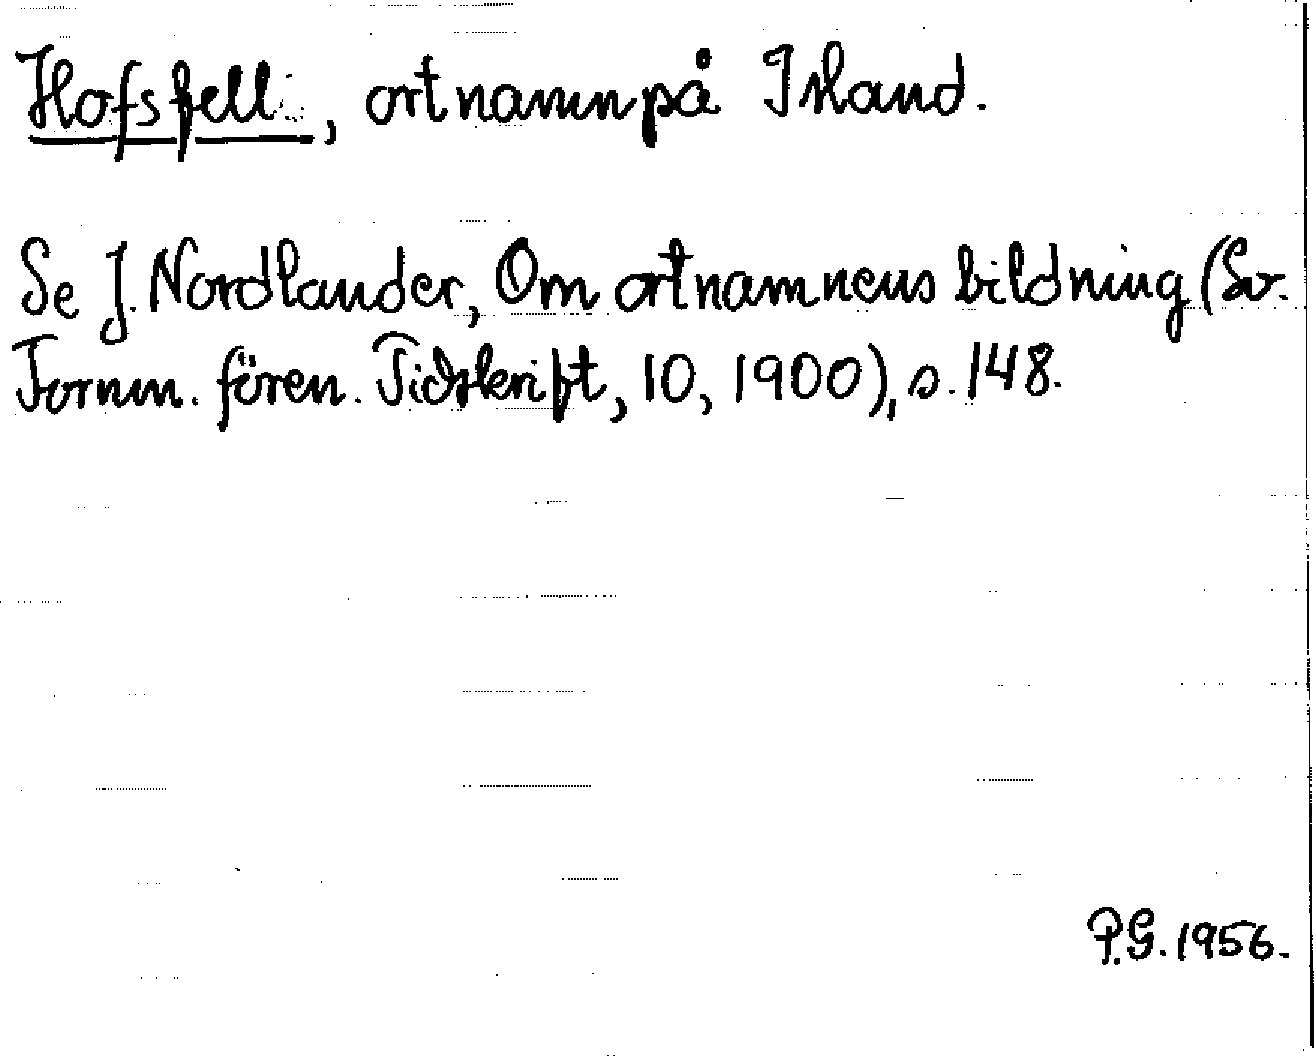 Hofsfell, ortnamn på Island.
Se J. Nordlander, Om ortnamnens bildning (Sv.
Fornm. fören. Tidskrift, 10, 1900), s. 148.
P.G. 1956.